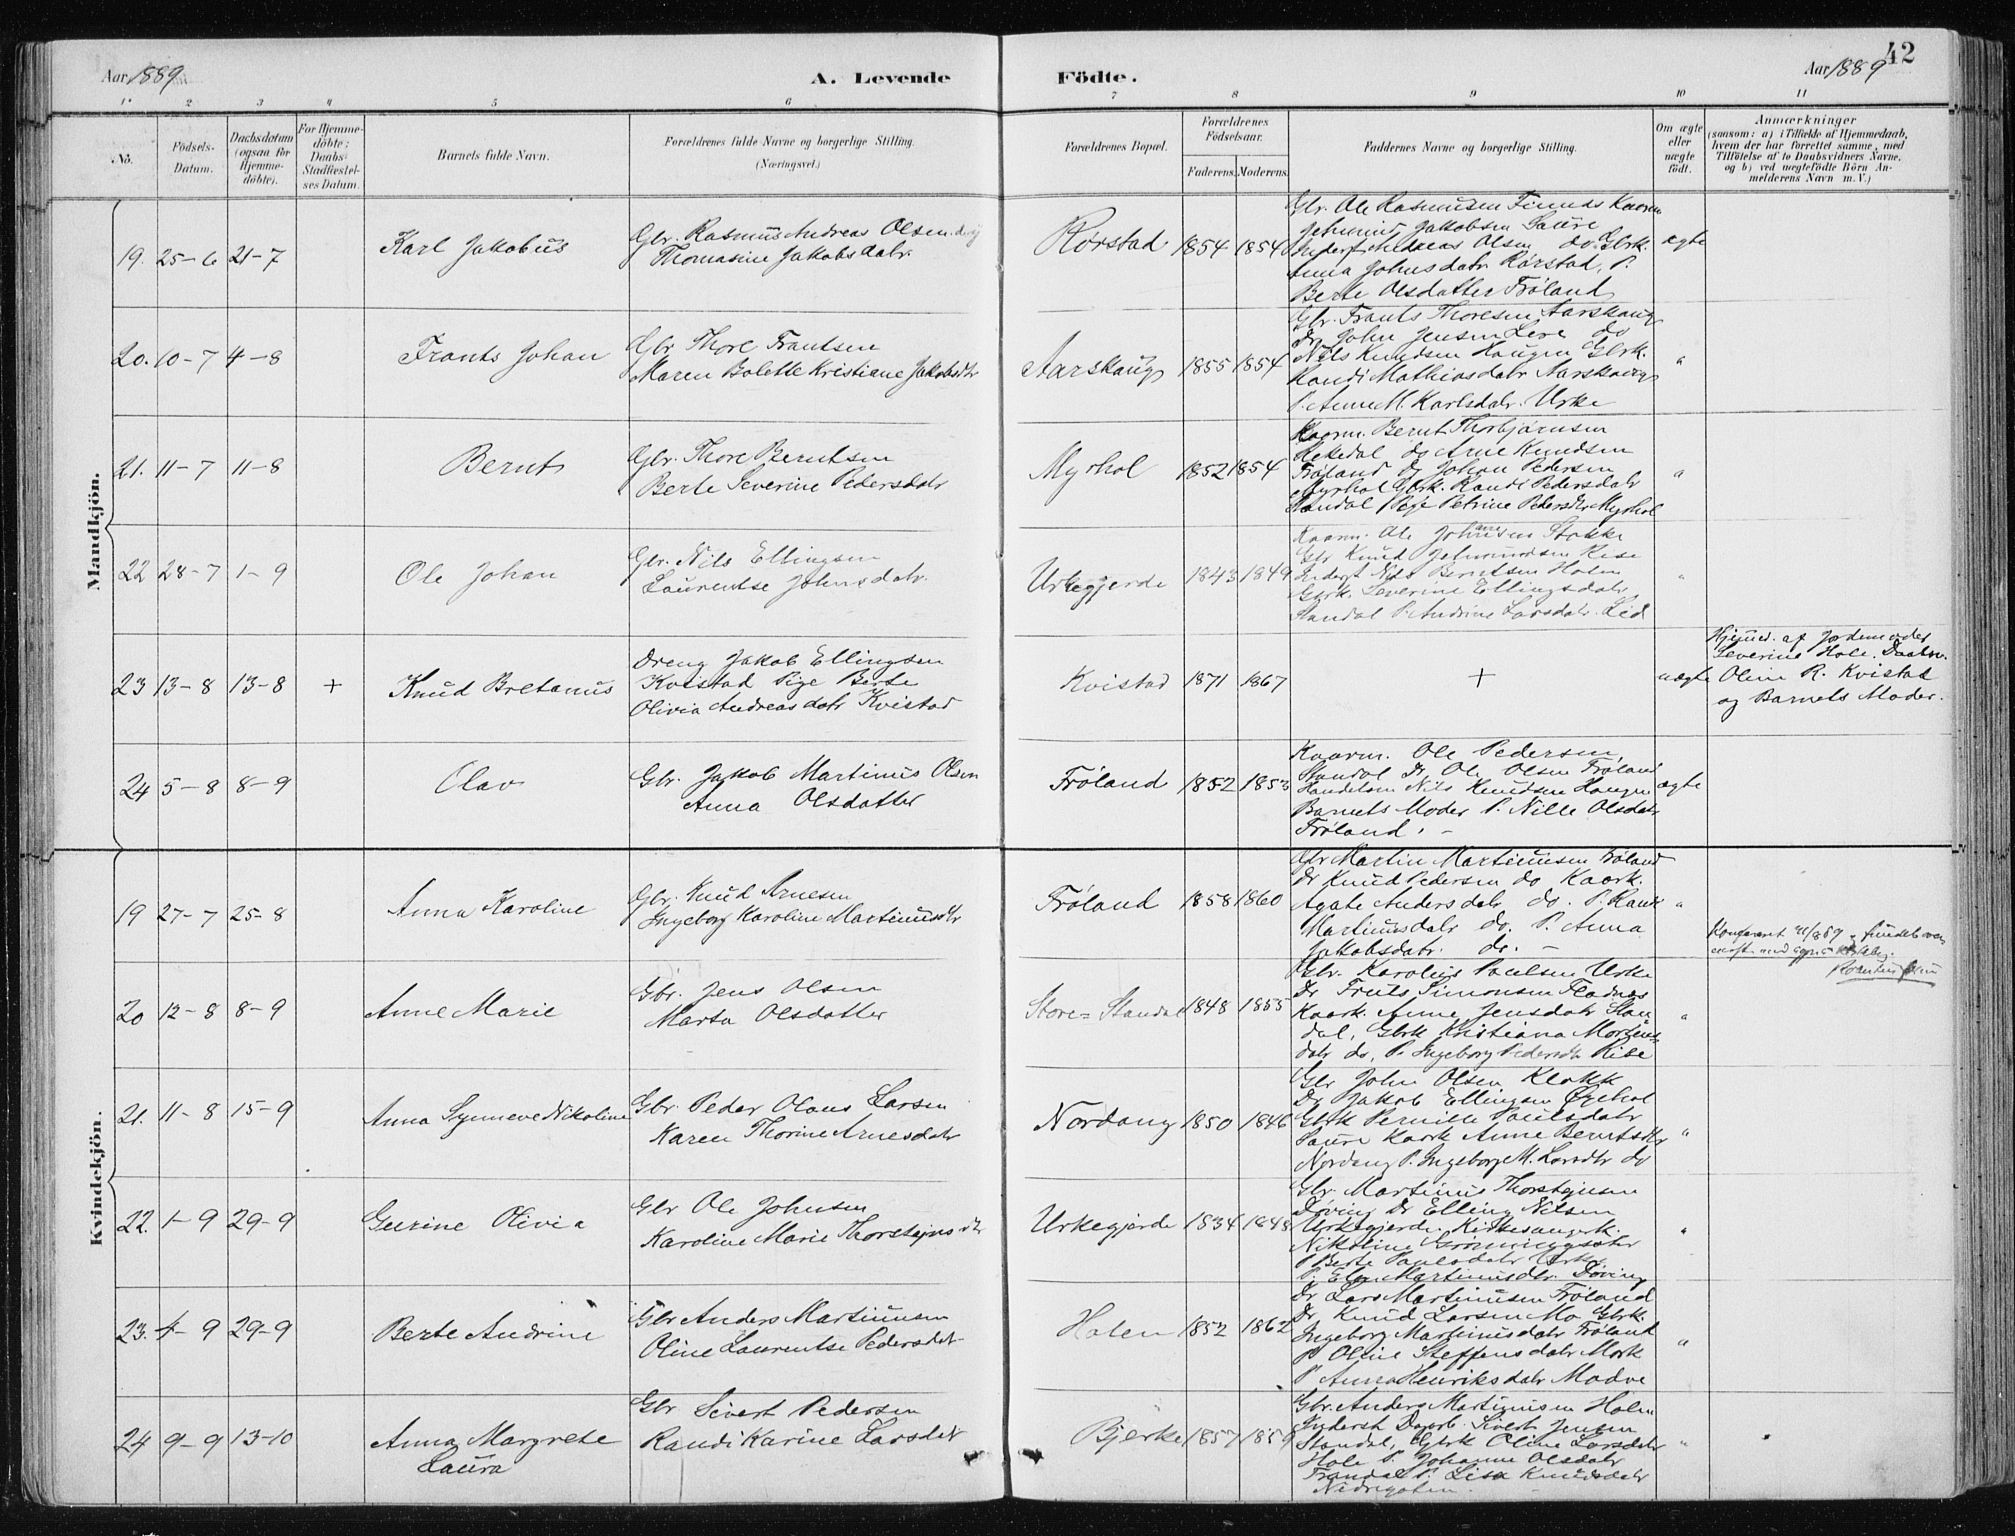 Aar 1889
A. Levende
Födte.
Aar 1889
42
1.
2
3
4
5
6
7
8
9
10
11
No.
Födsels-
Datum.
Daabsdatum
(ogsaa for
Hjemme-
döbte).
For Hjemme-
döbte;
Daabs-
Stadfæstel-
ses Datum.
Barnets fulde Navn.
Forældrenes fulde Navne og borgerlige Stilling.
(Næringsvei.)
Forældrenes Bopæl.
Forældrenes
Födselsaar.
Faderens.
Moderens.
Faddernes Navne og borgerlige Stilling.
Om ægte
eller
uægte
födt.
Anmærkninger
(saasom: a) i Tilfælde af Hjemmedaab,
hvem der har forrettet samme, med
Tilföielse af to Daabsvidners Navne,
og b) ved uægtefödte Börn An-
melderens Navn m. V.)
Mandkjön.
19. 25-6 21-7
Karl Jakobus
Gbr. Rasmus Andreas Olsen
Thomasine Jakobsdatr.
Rørstad
1854 1854
Gbr. Ole Rasmusen Finnes Kaarm
Jakobsen Saure
Andreas Olsen do. Gbrk.
Anna Johnsdatr Rørstad, P.
Berte Olsdatter Frøland
ægte
20. 10-7 4-8
Frants Johan
Gbr Thore Frantsen
Maren Bolette Kristiane Jakobsdtr
Aarskaug
1855 1854
Gbr. Frants Thoresen Aarskaug
Dr. John Jensen Lere do
Nils Knudsen Haugen Gbrk.
Randi Mathiasdatr Aarskaug
P. Anne M. Karlsdatr. Urke
"
21. 11-7 11-8
Bernt
Gbr. Thore Berntsen
Berte Severine Pedersdatr
Myrhol
1852 1854
Kaarm. Bernt Thorbjørnsen
Hekedal Dg Arne Knudsen
Frøland Dg Johan Pedersen
Myrhol Gbrk. Randi Pedersdatr
Standal Pige Petrine Pedersdtr Myrhol
"
22 28-7 1-9
Ole Johan
Gbr. Nils Ellingsen
Laurentse Johnsdatr.
Urkegjerde
1843 1849
Kaarm. Ole Stokke
Gbr Knud Jetmundsen Rise
Inderst Nils Berntsen Holen
Gbrk. Severine Ellingsdatr
Standal P. Andrine Larsdatr. Lid
"
23 13-8 13-8
+
Knud Bretanus
Dreng Jakob Ellingsen
Kvistad Pige Berte
Olivia Andreasdatr Kvistad
Kvistad
1871 1867
+
uægte
Hjemd. af Jordemoder
Severine Hole. Daabsv.
Oline R. Kvistad
og Barnets Moder.
24 5-8 8-9
Olav
Gbr. Jakob Martinus Olsen
Anna Olsdatter
Frøland
1852 1853
Kaarm. Ole Pedersen
Standal Dr. Ole Olsen Frøland
Handelsm Nils Knudsen Haugen
Barnets Moder P. Nille Olsdatr
Frøland. -
ægte
Kvindekjön.
19 27-7 25-8
Anna Karoline
Gbr. Knud Arnesen
Ingeborg Karoline Martinusdtr
Frøland
1858 1860
Gbr Martin Martinusen Frøland
Dr Knud Pedersen do Kaark.
Agate Andersdatr do. P. Randi
Martinusdatr do. P. Anna
Jakobsdatr. do. -
"
20 12-8 8-9
Anne Marie
Gbr. Jens Olsen
Marta Olsdatter
Store-Standal
1848 1855
Gbr. Karolus Paulsen Urke
Dr Frants Simonsen Fladnes
Kaark. Anne Jensdatr Stan
dal, Gbrk Kristiana Mortens
datr do, P. Ingeborg Pedersdtr Rise
"
21. 11-8 15-9
Anna Synneve Nikoline
Gbr. Peder Olaus Larsen
Karen Thorine Arnesdatr
Nordang
1850 1846
Gbr John Olsen Klokk
Dr Jakob Ellingsen Øyehol
Gbrk Pernille Paulsdatr
Saure Kaark Anne Berntsdtr
Nordang P. Ingeborg M. Larsdtr do
"
22. 1-9 29-9
Gurine Olivia
Gbr Ole Johnsen
Karoline Marie Thorstejnsdtr
Urkegjerde
1834 1848
Gbr. Martinus Thorstejnsen
Døving Dr Elling Nilsen
Urkegjerde, Kirkesangerk.
Nikoline Grønningsæter
P. Berte Paulsdatr Urke
P. Elen Martinusdtr. Døving
"
23. 4-9 29-9
Berte Andrine
Gbr Anders Martinusen
Oline Laurentse Pedersdatr
Holen
1852 1862
Dr Lars Martinusen Frøland
Dr. Knud Larsen Mo Gbrk.
Ingeborg Martinusdatr Frøland
P Oline Steffensdatr Mork
P. Anna Henriksdatr Modve
"
24 9-9 13-10
Anna Margrete
Laura
Gbr Sivert Pedersen
Randi Karine Larsdatr
Bjerke
1857 1859
Gbr. Anders Martinusen Holen
Inderst Sivert Jensen
Standal, Gbrk Oline Larsdatr
Hole P. Johanne Olsdatr
Trandal P. Lisa Knudsdatr
"